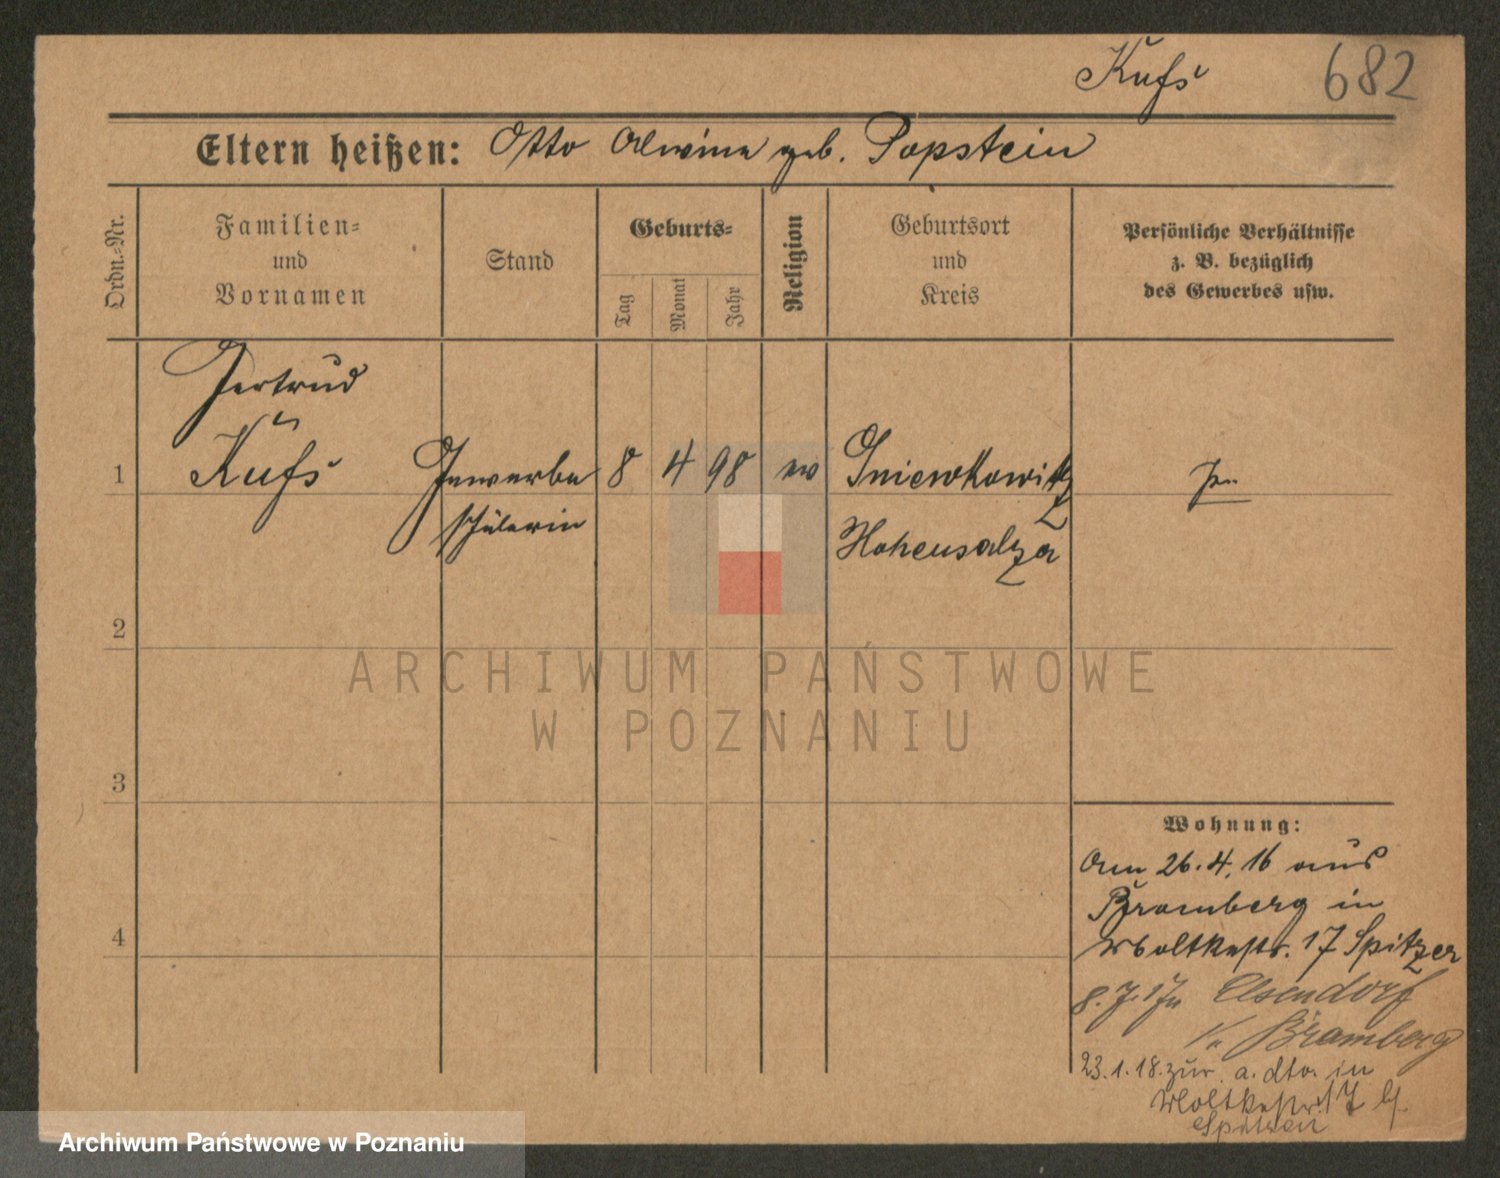 Kufs 682
Eltern heißen: Otto Alwine geb. Papstein
Ordn.=Nr.
Familien=
und
Vornamen
Stand
Geburts=
Tag
Monat
Jahr
Religion
Geburtsort
und
Kreis
Persönliche Verhältnisse
z. B. bezüglich
des Gewerbes usw.
Gertrud
1 Kufs Gewerbe 8 4 98 ev Gniewkowitz
schülerin Hohensalza
2
3
4
Wohnung:
Am 26.4.16 aus
Bromberg in
Moltkestr. 17 Spitzer
8.7.17 n Elsendorf
Kr. Bromberg
23.1.18. zur. a. dto. in
Moltkestr. 17 b/
Spitzer
ARCHIWUM PAŃSTWOWE
W POZNANIU
Archiwum Państwowe w Poznaniu